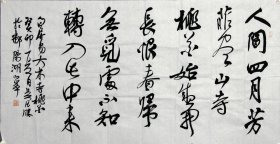 人間四月芳
菲盡山寺
桃花始盛開
長恨春歸
無覓處不知
轉入此中来
白居易大林寺桃花
癸卯
於鄱陽湖